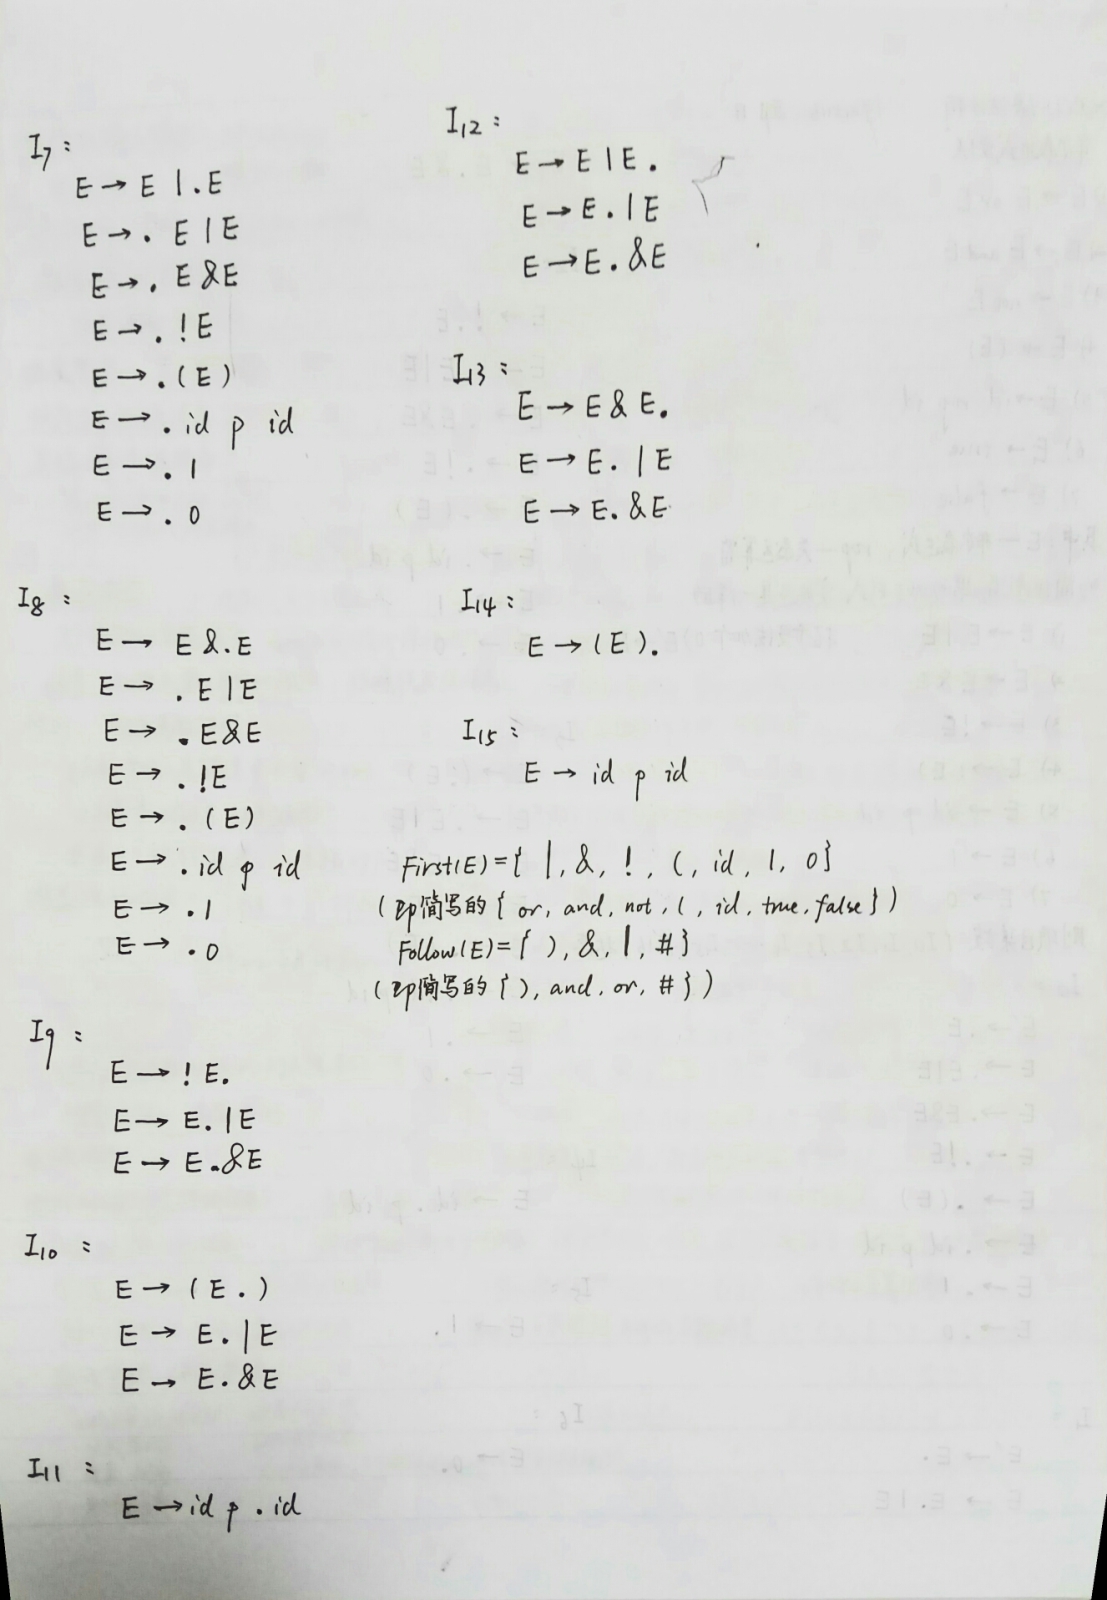 I7:
E → E |.E
E →. E | E
E →. E & E
E → . ! E
E → . ( E )
E → . id p id
E → . 1
E → . 0
I8:
E → E &.E
E → . E | E
E → . E & E
E → . !E
E → . ( E )
E → . id p id
E → . 1
E → . 0
I9:
E → ! E.
E → E. | E
E → E.& E
I10:
E → ( E . )
E → E. | E
E → E. & E
I11:
E → id p . id
I12:
E → E | E.
E → E. | E
E → E. & E
I13:
E → E & E.
E → E. | E
E → E. & E
I14:
E → (E).
I15:
E → id p id
First(E)={ |, &, !, (, id, 1, 0}
(即简写的{ or, and, not, (, id, true, false})
Follow(E)={ ), &, |, #}
(即简写的{ ), and, or, #})